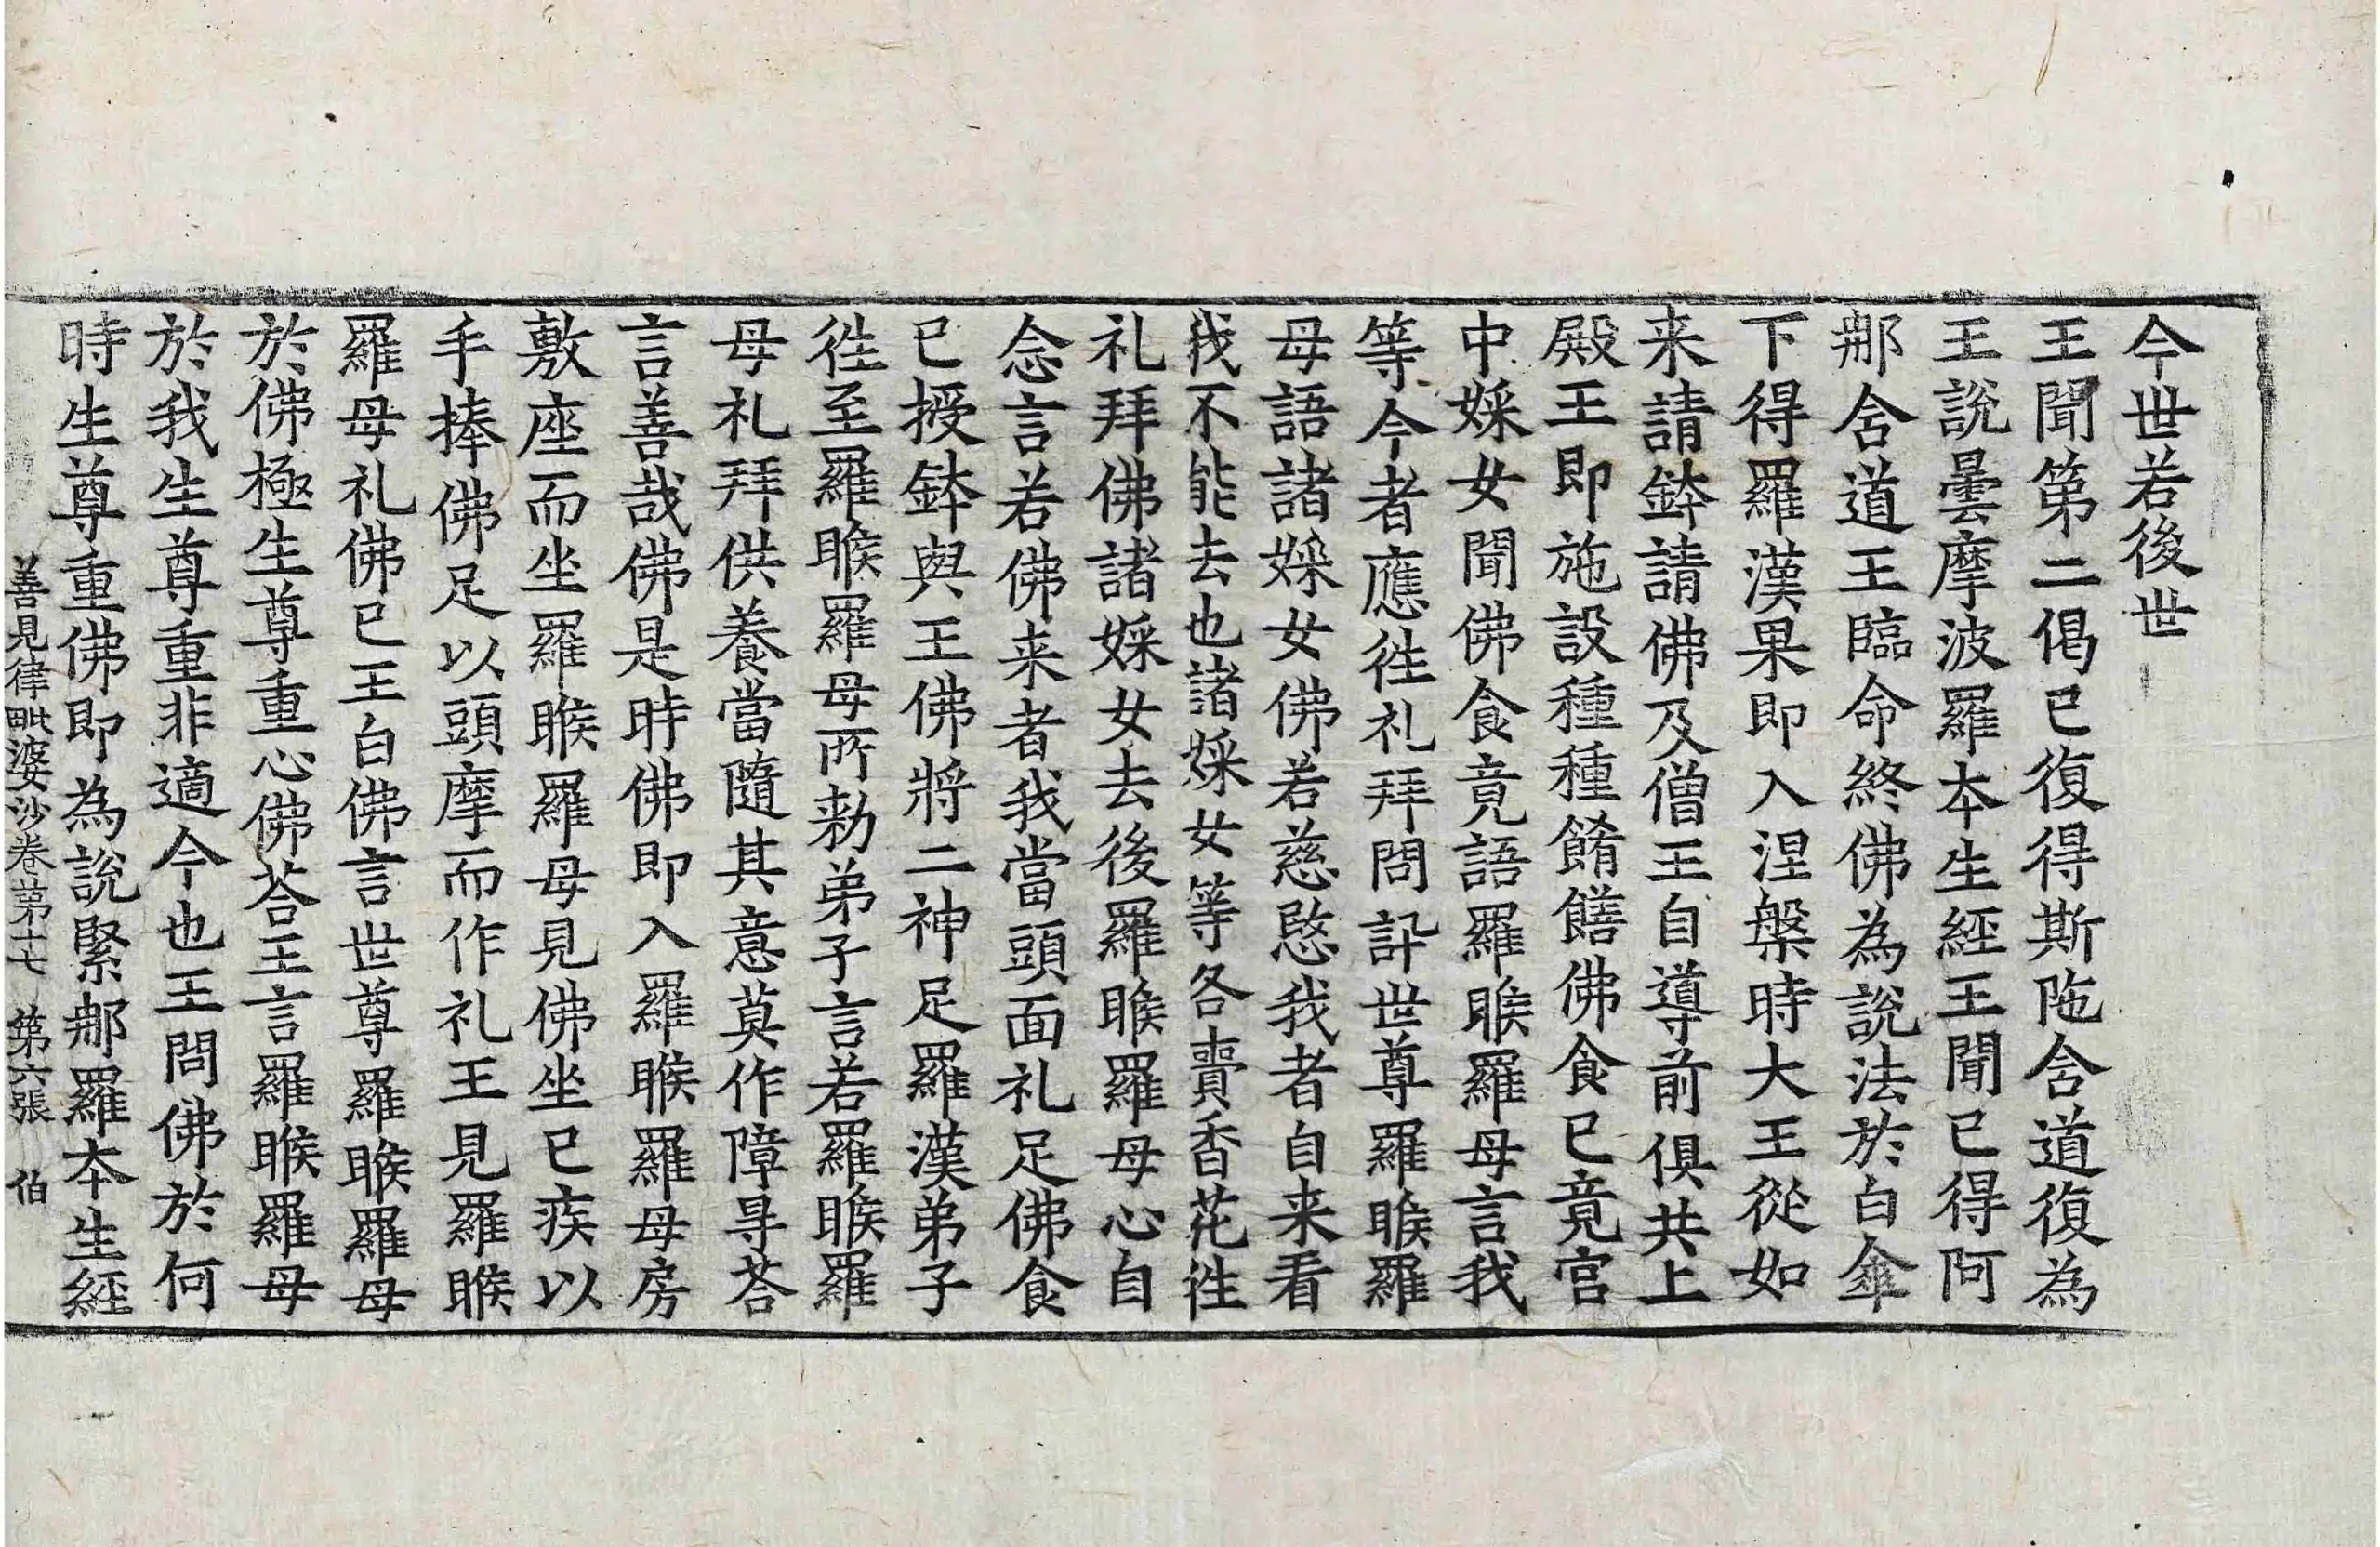 今世若後世
王聞第二偈已復得斯陁含道復為
王說曇摩波羅本生經王聞已得阿
那含道王臨命終佛為說法於白傘
下得羅漢果即入涅槃時大王從如
来請鉢請佛及僧王自導前俱共上
殿王即施設種種餚饍佛食已竟宮
中婇女聞佛食竟語羅睺羅母言我
等今者應徃礼拜問訊世尊羅睺羅
母語諸婇女佛若慈愍我者自来看
我不能去也諸婇女等各賷香花徃
礼拜佛諸婇女去後羅睺羅母心自
念言若佛来者我當頭面礼足佛食
已授鉢與王佛將二神足羅漢弟子
徃至羅睺羅母所勑弟子言若羅睺羅
母礼拜供養當隨其意莫作障㝵荅
言善哉佛是時佛即入羅睺羅母房
敷座而坐羅睺羅母見佛坐已疾以
手捧佛足以頭摩而作礼王見羅睺
羅母礼佛已王白佛言世尊羅睺羅母
於佛極生尊重心佛荅王言羅睺羅母
於我生尊重非適今也王問佛於何
時生尊重佛即為說緊那羅本生經
善見律毗婆沙卷第十七 第六張 伯